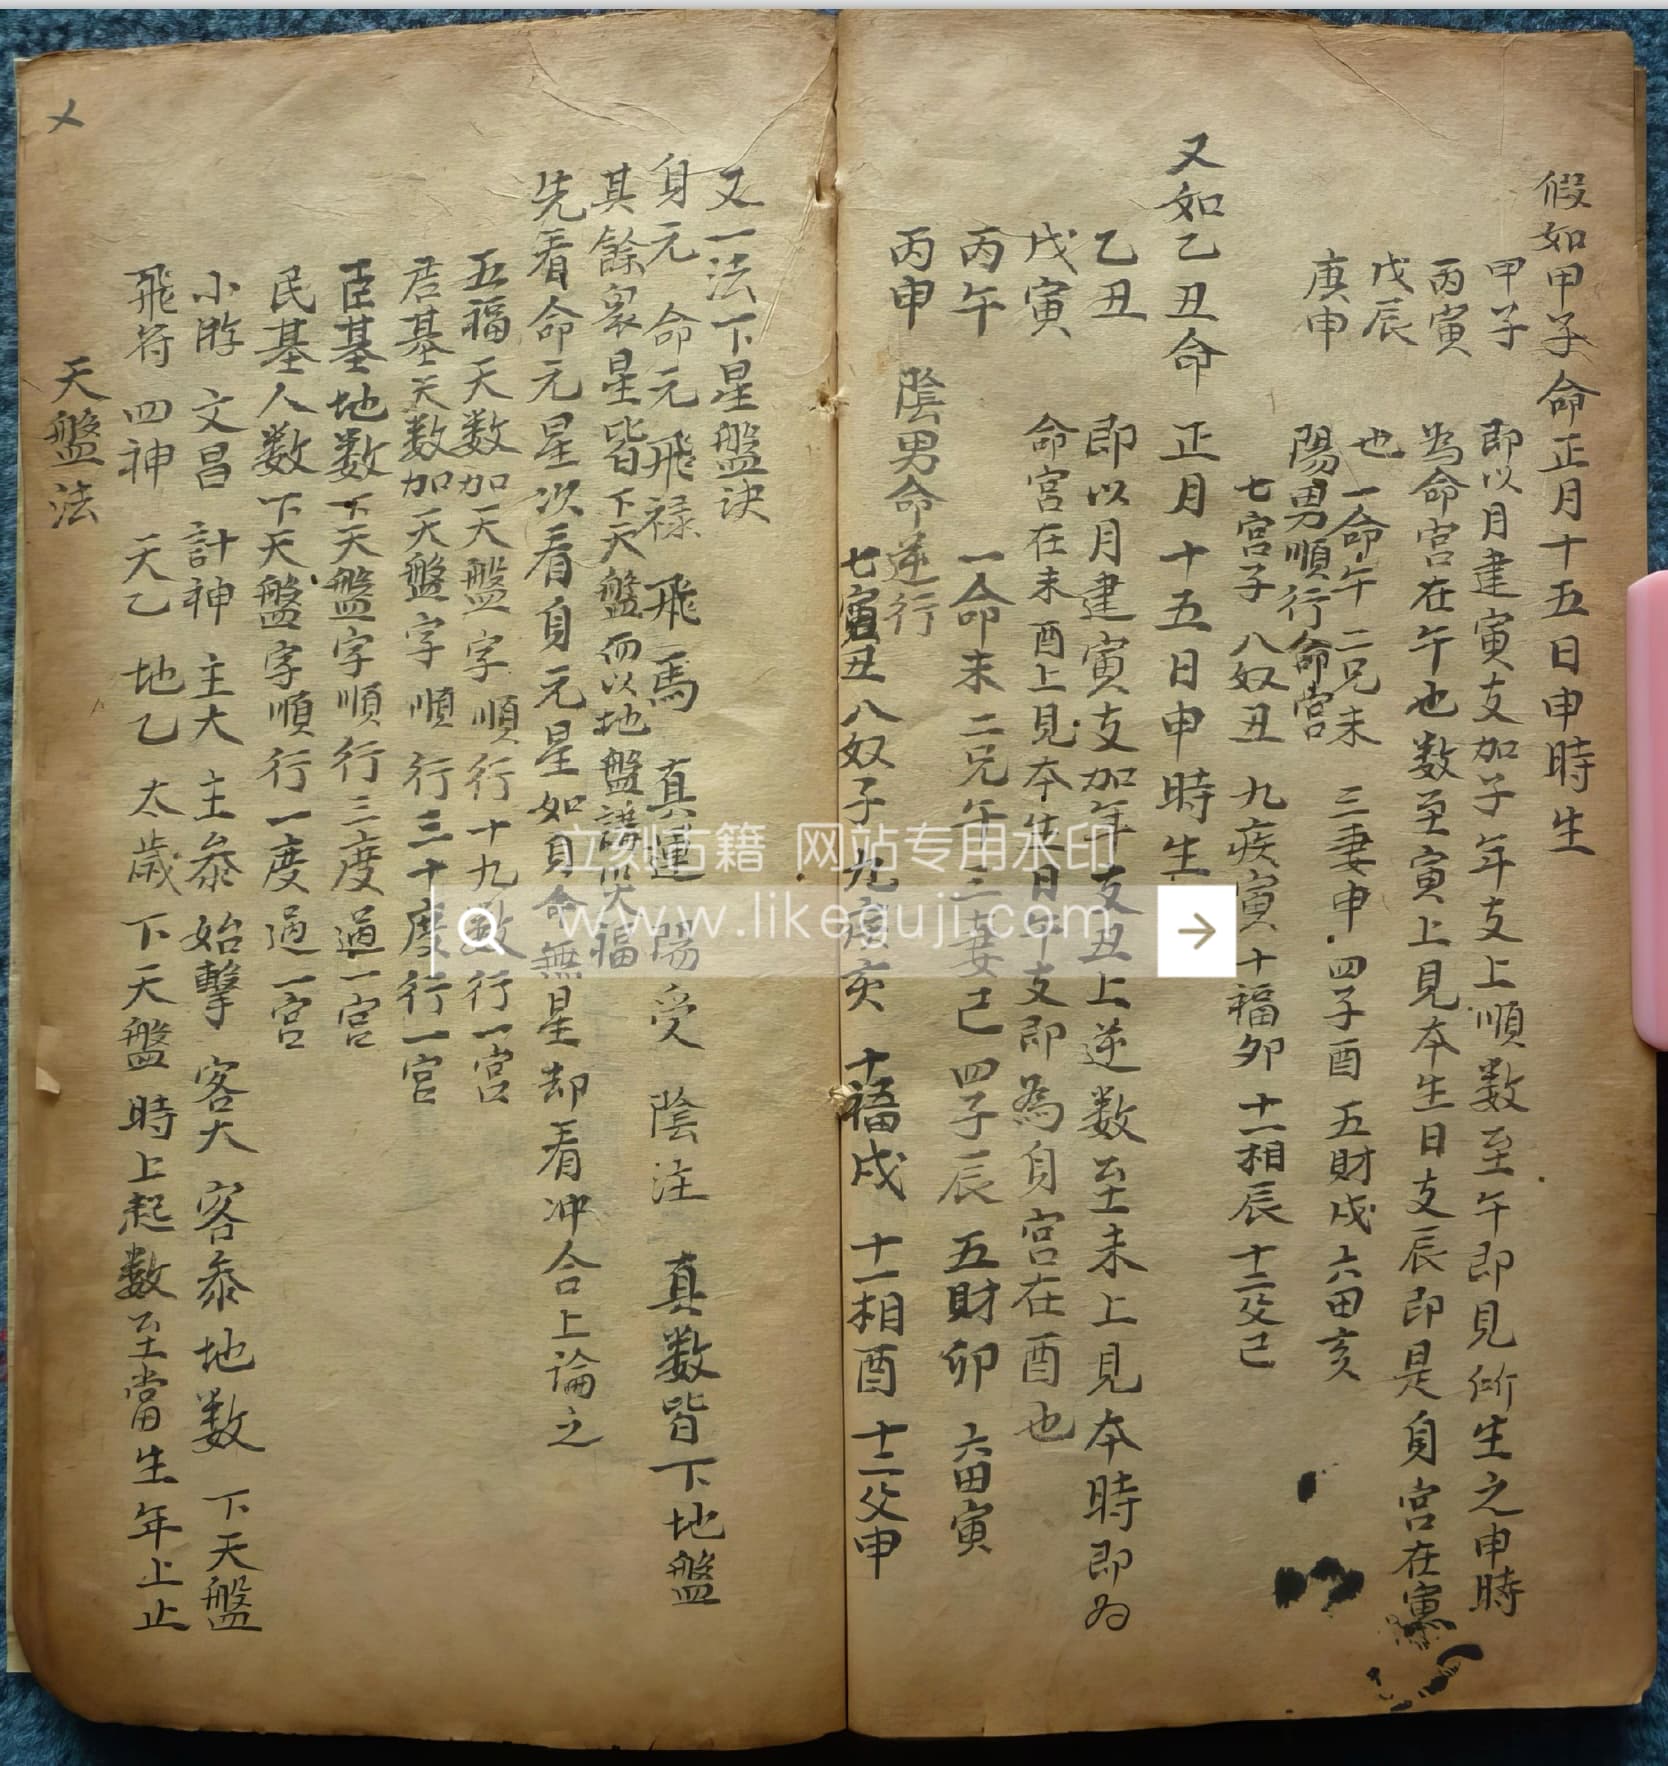 假如甲子命正月十五日申時生
甲子 即以月建寅支加子年支上順数至午即見所生之申時
丙寅 為命宮在午也数至寅上見本生日支辰即是身宮在寅
戊辰 也 一命午 二兄未 三妻申 四子酉 五財戌 六田亥
庚申 陽男順行命宮
七宮子 八奴丑 九疾寅 十福卯 十一相辰 十二父己
又如乙丑命正月十五日申時生
乙丑 即以月建寅支加年支丑上逆数至未上見本時即为
戊寅 命宮在未酉上見本生日干支即為身宮在酉也
丙午 一命未 二兄午 三妻己 四子辰 五財卯 六田寅
丙申 陰男命逆行
七丑 八奴子 九疾亥 十福戌 十一相酉 十二父申
又一法下星盤诀
身元 命元 飛禄 飛馬 真運 陽受 陰注 真数皆下地盤
其餘衆星皆下天盤而以地盤講福
先看命元星次看身元星如身命無星却看冲合上論之
五福天数加天盤字順行十九数行一宮
君基天数加天盤字順行三十度行一宮
臣基地数下天盤字順行三度過一宮
民基人数下天盤字順行一度過一宮
小遊 文昌 計神 主大 主参 始擊 客大 客参 地数 下天盤
飛符 四神 天乙 地乙 太歲 下天盤 時上起数至當生年上止
天盤法
立刻古籍 网站专用水印
www.likeguji.com